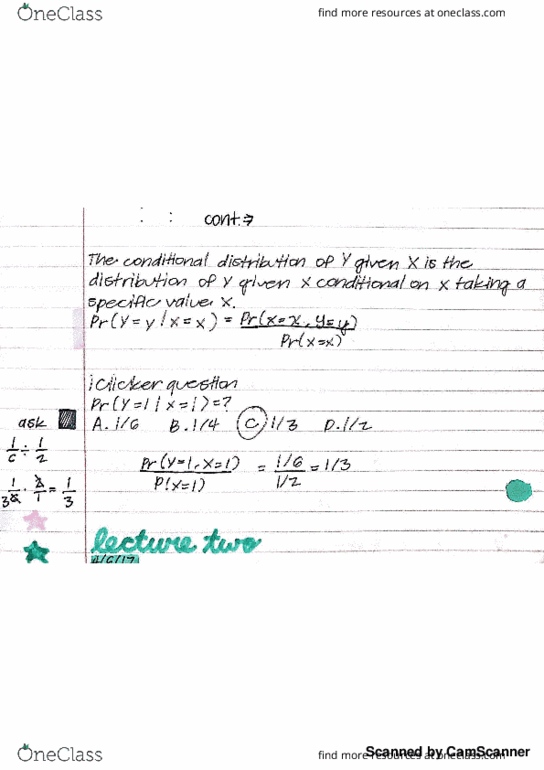 OneClass
find more resources at oneclass.com
: : cont.→
The conditional distribution of Y given X is the
distribution of Y given X conditional on X taking a
specific value, x.
Pr(Y=y|X=x) = Pr(X=x, Y=y)
Pr(X=x)
iClicker question
Pr(Y=1|X=1)=?
ask
A. 1/6 B. 1/4 C. 1/3 D. 1/2
1/6 ÷ 1/2
Pr(Y=1, X=1) = 1/6 = 1/3
P(X=1) 1/2
1/36 · 2/1 = 1/3
lecture two
4/6/17
Scanned by CamScanner
OneClass
find more resources at oneclass.com